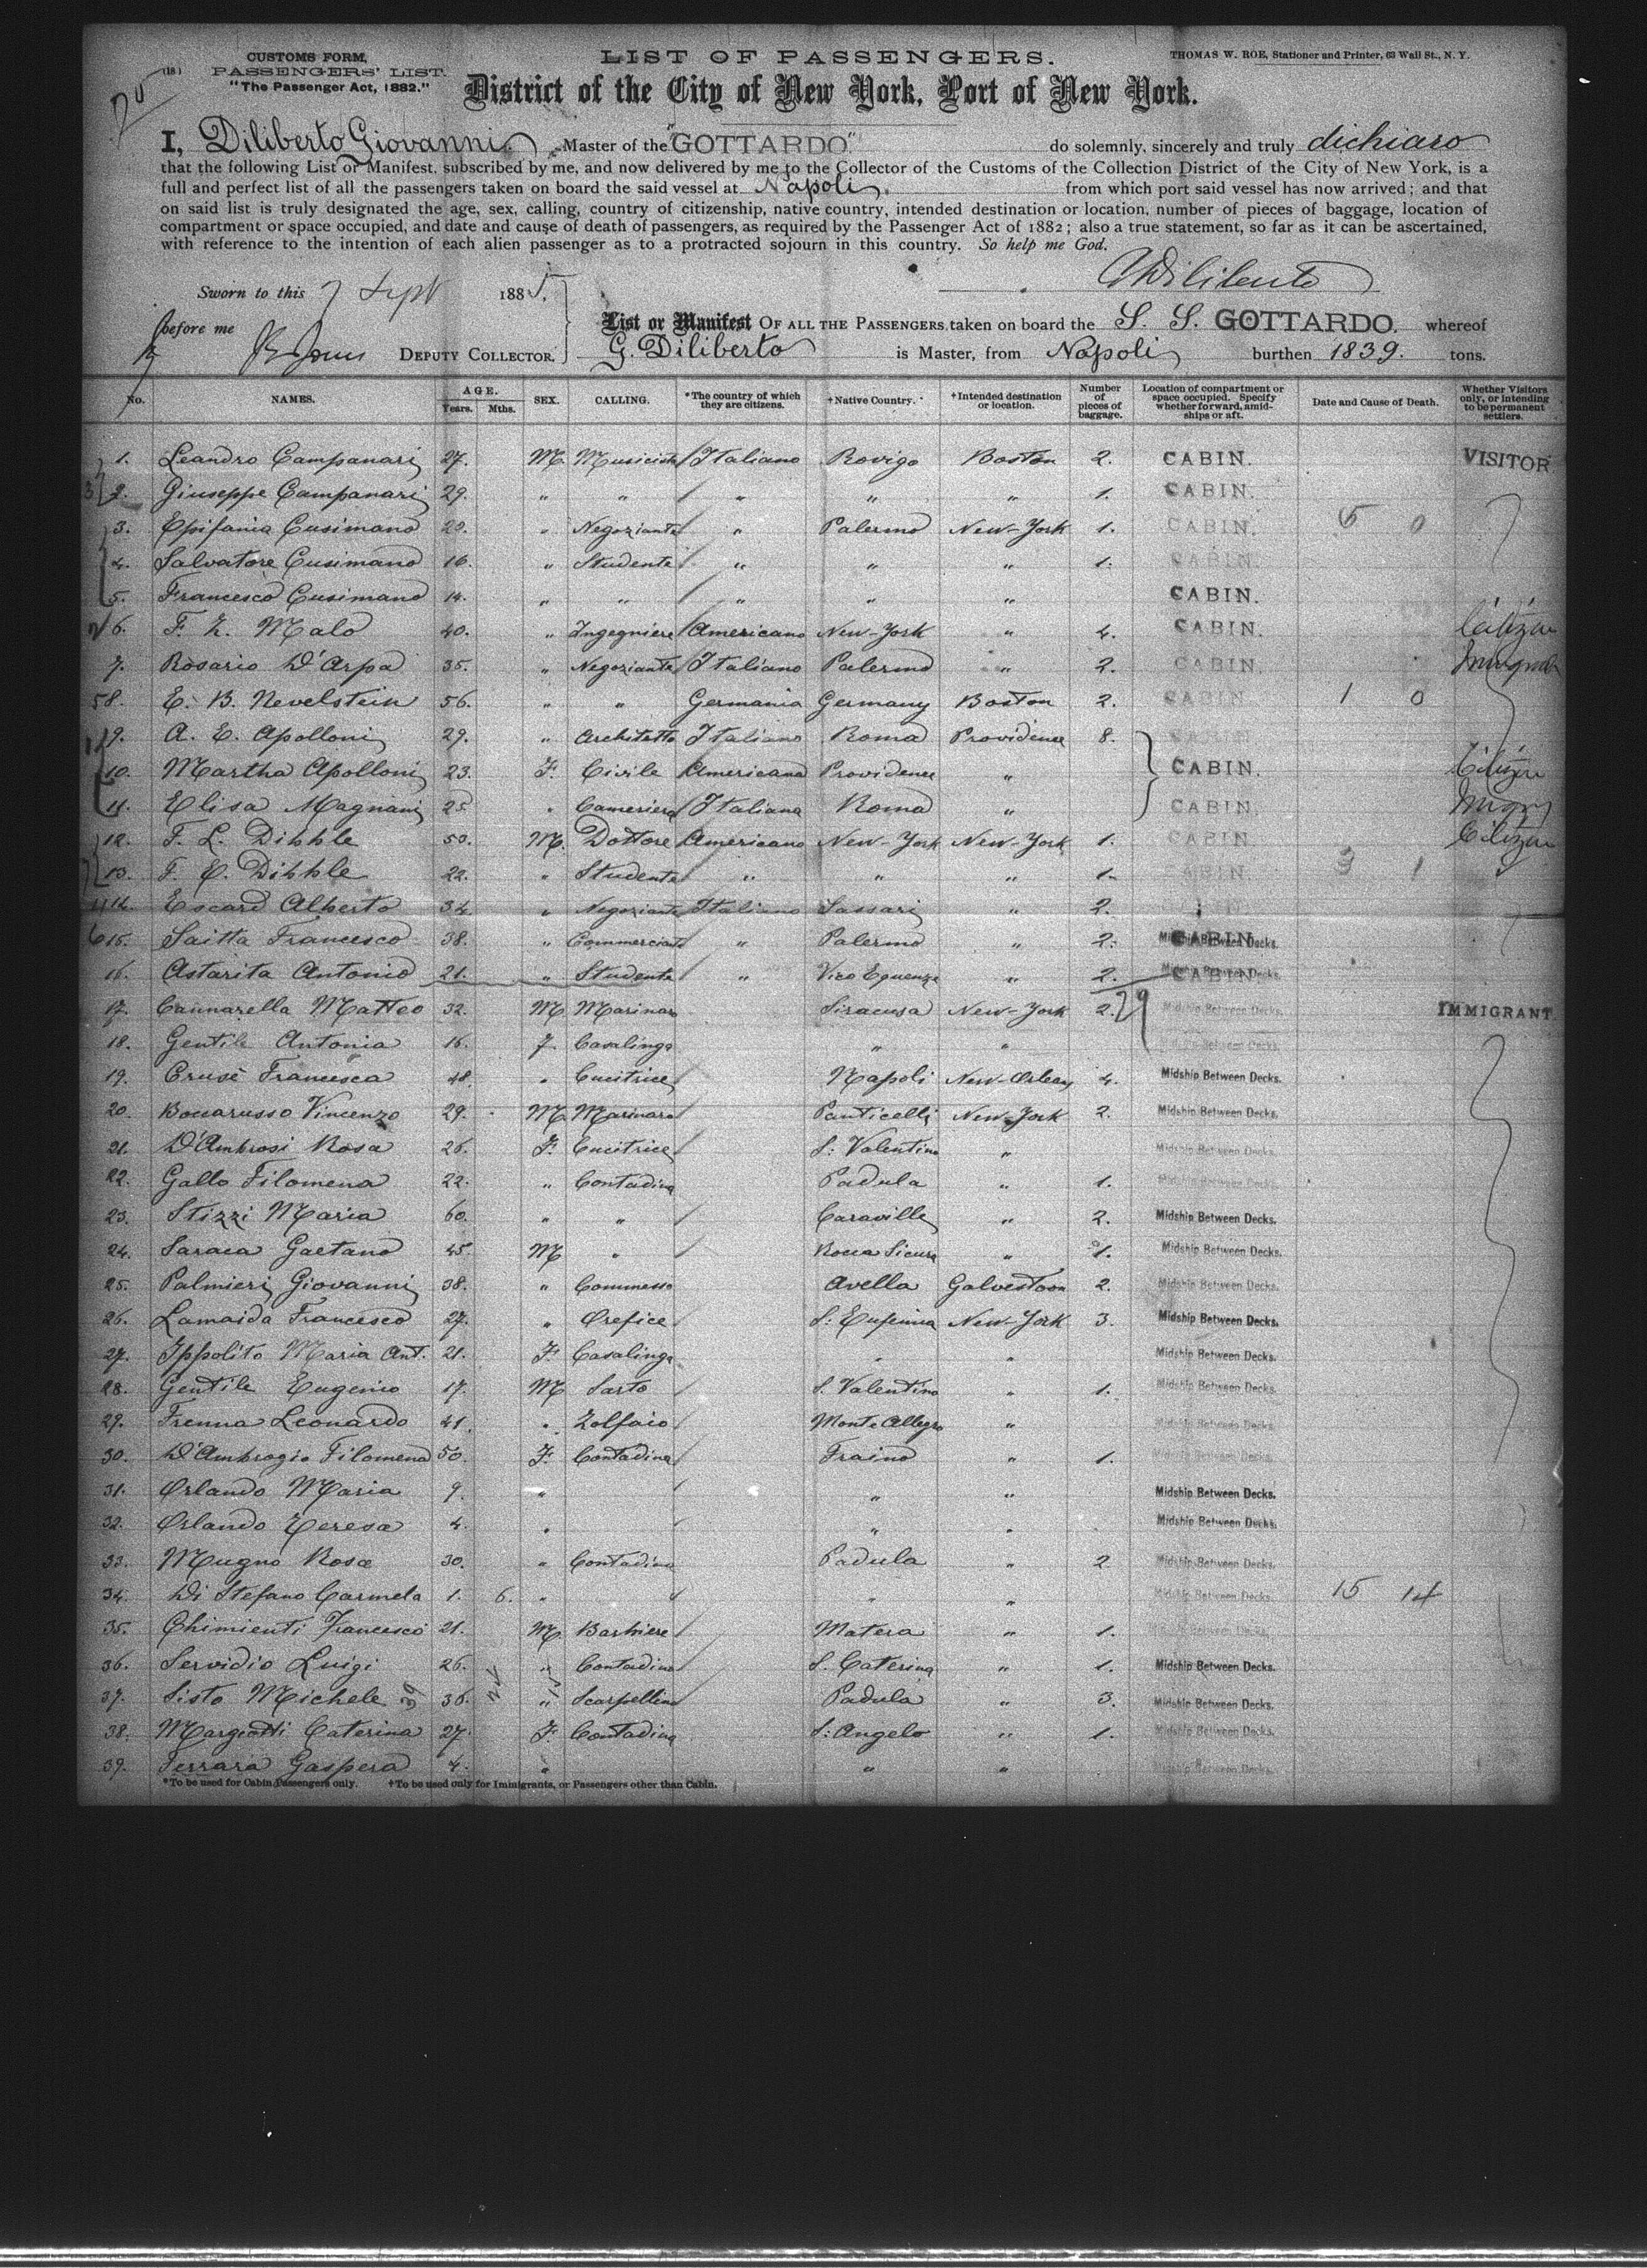 CUSTOMS FORM, LIST OF PASSENGERS. THOMAS W. ROE, Stationer and Printer, 63 Wall St., N. Y.
(18) PASSENGERS' LIST.
"The Passenger Act, 1882." District of the City of New York, Port of New York.
I, Diliberto Giovanni Master of the "GOTTARDO" do solemnly, sincerely and truly dichiaro
that the following List or Manifest, subscribed by me, and now delivered by me to the Collector of the Customs of the Collection District of the City of New York, is a
full and perfect list of all the passengers taken on board the said vessel at Napoli from which port said vessel has now arrived; and that
on said list is truly designated the age, sex, calling, country of citizenship, native country, intended destination or location, number of pieces of baggage, location of
compartment or space occupied, and date and cause of death of passengers, as required by the Passenger Act of 1882; also a true statement, so far as it can be ascertained,
with reference to the intention of each alien passenger as to a protracted sojourn in this country. So help me God.
GDiliberto
Sworn to this 7 Sept 1885,
before me DEPUTY COLLECTOR.
List or Manifest OF ALL THE PASSENGERS taken on board the S. S. GOTTARDO. whereof
G. Diliberto is Master, from Napoli burthen 1839. tons.
No. NAMES. AGE. Years. Mths. SEX. CALLING. *The country of which they are citizens. †Native Country. †Intended destination or location. Number of pieces of baggage. Location of compartment or space occupied. Specify whether forward, amidships or aft. Date and Cause of Death. Whether Visitors only, or intending to be permanent settlers.
1. Leandro Campanari 27. M. Musicista Italiano Rovigo Boston 2. CABIN. VISITOR
2. Giuseppe Campanari 29. " " " " " 1. CABIN.
3. Epifania Cusimano 20. " Negoziante " Palermo New-York 1. CABIN. 6 0
4. Salvatore Cusimano 16. " Studente " " " 1. CABIN.
5. Francesco Cusimano 14. " " " " " CABIN.
6. F. Z. Malo 40. " Ingegniere Americano New-York " 4. CABIN. Citizen
7. Rosario D'Arpa 35. " Negoziante Italiano Palermo " 2. CABIN.
8. E. B. Nevelstein 56. " " Germania Germany Boston 2. CABIN 1 0
9. A. E. Apolloni 29. " Architetto Italiano Roma Providence 8. CABIN.
10. Martha Apolloni 23. F. Civile Americana Providence " CABIN. Citizen
11. Elisa Magnani 25 " Cameriera Italiana Roma " CABIN.
12. F. L. Dibble 50. M. Dottore Americano New-York New-York 1. CABIN Citizen
13. F. E. Dibble 22. " Studente " " " 1. CABIN. 3 1
14. Escard Alberto 34. " Negoziante Italiano Sassari " 2.
15. Saitta Francesco 38. " Commerciante " Palermo " 2. CABIN
16. Astarita Antonio 21. " Studente " Vico Equense " 2. CABIN
17. Cannarella Matteo 32. M Marinaro Siracusa New-York 2. Midship Between Decks. IMMIGRANT
18. Gentile Antonia 16. F. Casalinga " " Midship Between Decks.
19. Crusè Francesca 48. " Cucitrice Napoli New-Orleans 4. Midship Between Decks.
20. Boccarusso Vincenzo 29. M Marinaro Ponticelli New-York 2. Midship Between Decks.
21. D'Ambrosi Rosa 26. F. Cucitrice S: Valentino " Midship Between Decks.
22. Gallo Filomena 22. " Contadina Padula " 1. Midship Between Decks.
23. Stizzi Maria 60. " " Caraville " 2. Midship Between Decks.
24. Saraca Gaetano 45. M " Rocca Sicura " 1. Midship Between Decks.
25. Palmieri Giovanni 38. " Commesso Avella Galvestoon 2. Midship Between Decks.
26. Lamaida Francesco 27. " Orefice S: Eufemia New-York 3. Midship Between Decks.
27. Ippolito Maria Ant. 21. F. Casalinga " " Midship Between Decks.
28. Gentile Eugenio 17. M Sarto S. Valentino " 1. Midship Between Decks.
29. Frenna Leonardo 41. " Zolfaio Monte Allegro " Midship Between Decks.
30. D'Ambrogio Filomena 50. F. Contadina Fraino " 1. Midship Between Decks.
31. Orlando Maria 9. " " " Midship Between Decks.
32. Orlando Teresa 4. " " " Midship Between Decks.
33. Mugno Rosa 30. " Contadina Padula " 2 Midship Between Decks.
34. Di Stefano Carmela 1. 6. " " " " Midship Between Decks. 15 14
35. Chimienti Francesco 21. M. Barbiere Matera " 1. Midship Between Decks.
36. Servidio Luigi 26. " Contadino S. Caterina " 1. Midship Between Decks.
37. Sisto Michele 36. " Scarpellino Padula " 3. Midship Between Decks.
38. Margiotti Caterina 27. F. Contadina S: Angelo " 1. Midship Between Decks.
39. Ferrara Gaspera 4. " " " Midship Between Decks.
*To be used for Cabin Passengers only. †To be used only for Immigrants, or Passengers other than Cabin.